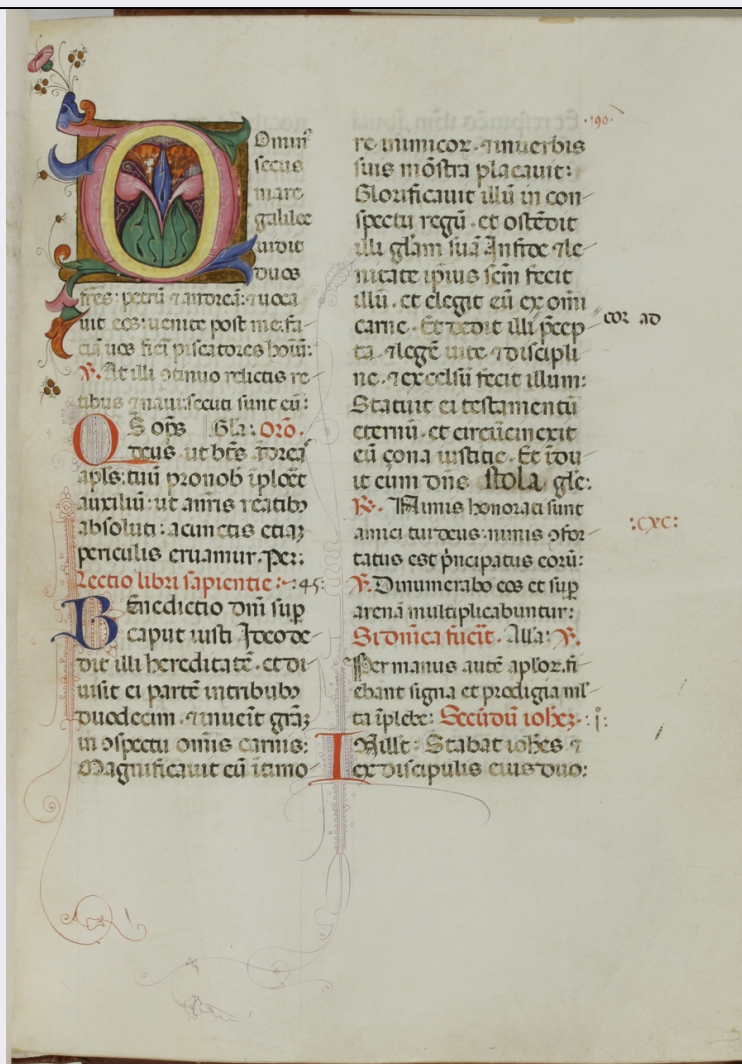 Dominꝰ
secus
mare
galilee
uidit
duos
fr̄es: petrū ⁊ andreā: ⁊ uoca
uit eos: uenite post me. fa
ciā uos fieri piscatores hoīu͞:
℣. At illi ꝯtinuo relictis re
tibus ⁊ naui: secuti sunt eū:
S op̄s Gl̄a: Orō.
Q deus. ut bt̄s andreas
apl̄s. tuū pro nob̄ īploret
auxiliū: ut a nr̄is reatibꝰ
absoluti: a cunctis etiaꝫ
periculis eruamur. Per:
Lectio libri sapientie: 45:
Benedictio dn̄i suꝑ
caput iusti Ideo de
dit illi hereditatē. et di
uisit ei partē in tribubꝰ
duodecim. ⁊ inuēit gr̄aꝫ
in ꝯspectu om̄is carnis:
Magnificauit eū ī timo
.190.
re inimicoꝝ. ⁊ in uerbis
suis mōstra placauit:
Glorificauit illū in con
spectu regū. et ostēdit
illi gl̄am suā In fide ⁊ le
nitate ip̄ius scm̄ fecit
illū. et elegit eū ex om̄i
carne. Et dedit illi p̄cep
cor ad
ta. ⁊ legē uite ⁊ discipli
ne. ⁊ excelsū fecit illum:
Statuit ei testamentū
eternū. et circūcinexit
eū çona iustitie. Et īdu
it eum dn̄s stola gl̄e:
℟. Nimis honorati sunt
amici tui deus: nimis ꝯfor
tatus est p̄ncipatus eorū:
:cxc:
℣. Dinumerabo eos et suꝑ
arenā multiplicabuntur:
Si dn̄ica fuēit. All̄a: ℣.
Per manus autē apl̄oꝝ. fi
ebant signa et prodigia ml̄
ta ī plebe: Secūdū ioheꝫ. i:
In ill̄. t̄: Stabat ioh̄es ⁊
ex discipulis eius duo: